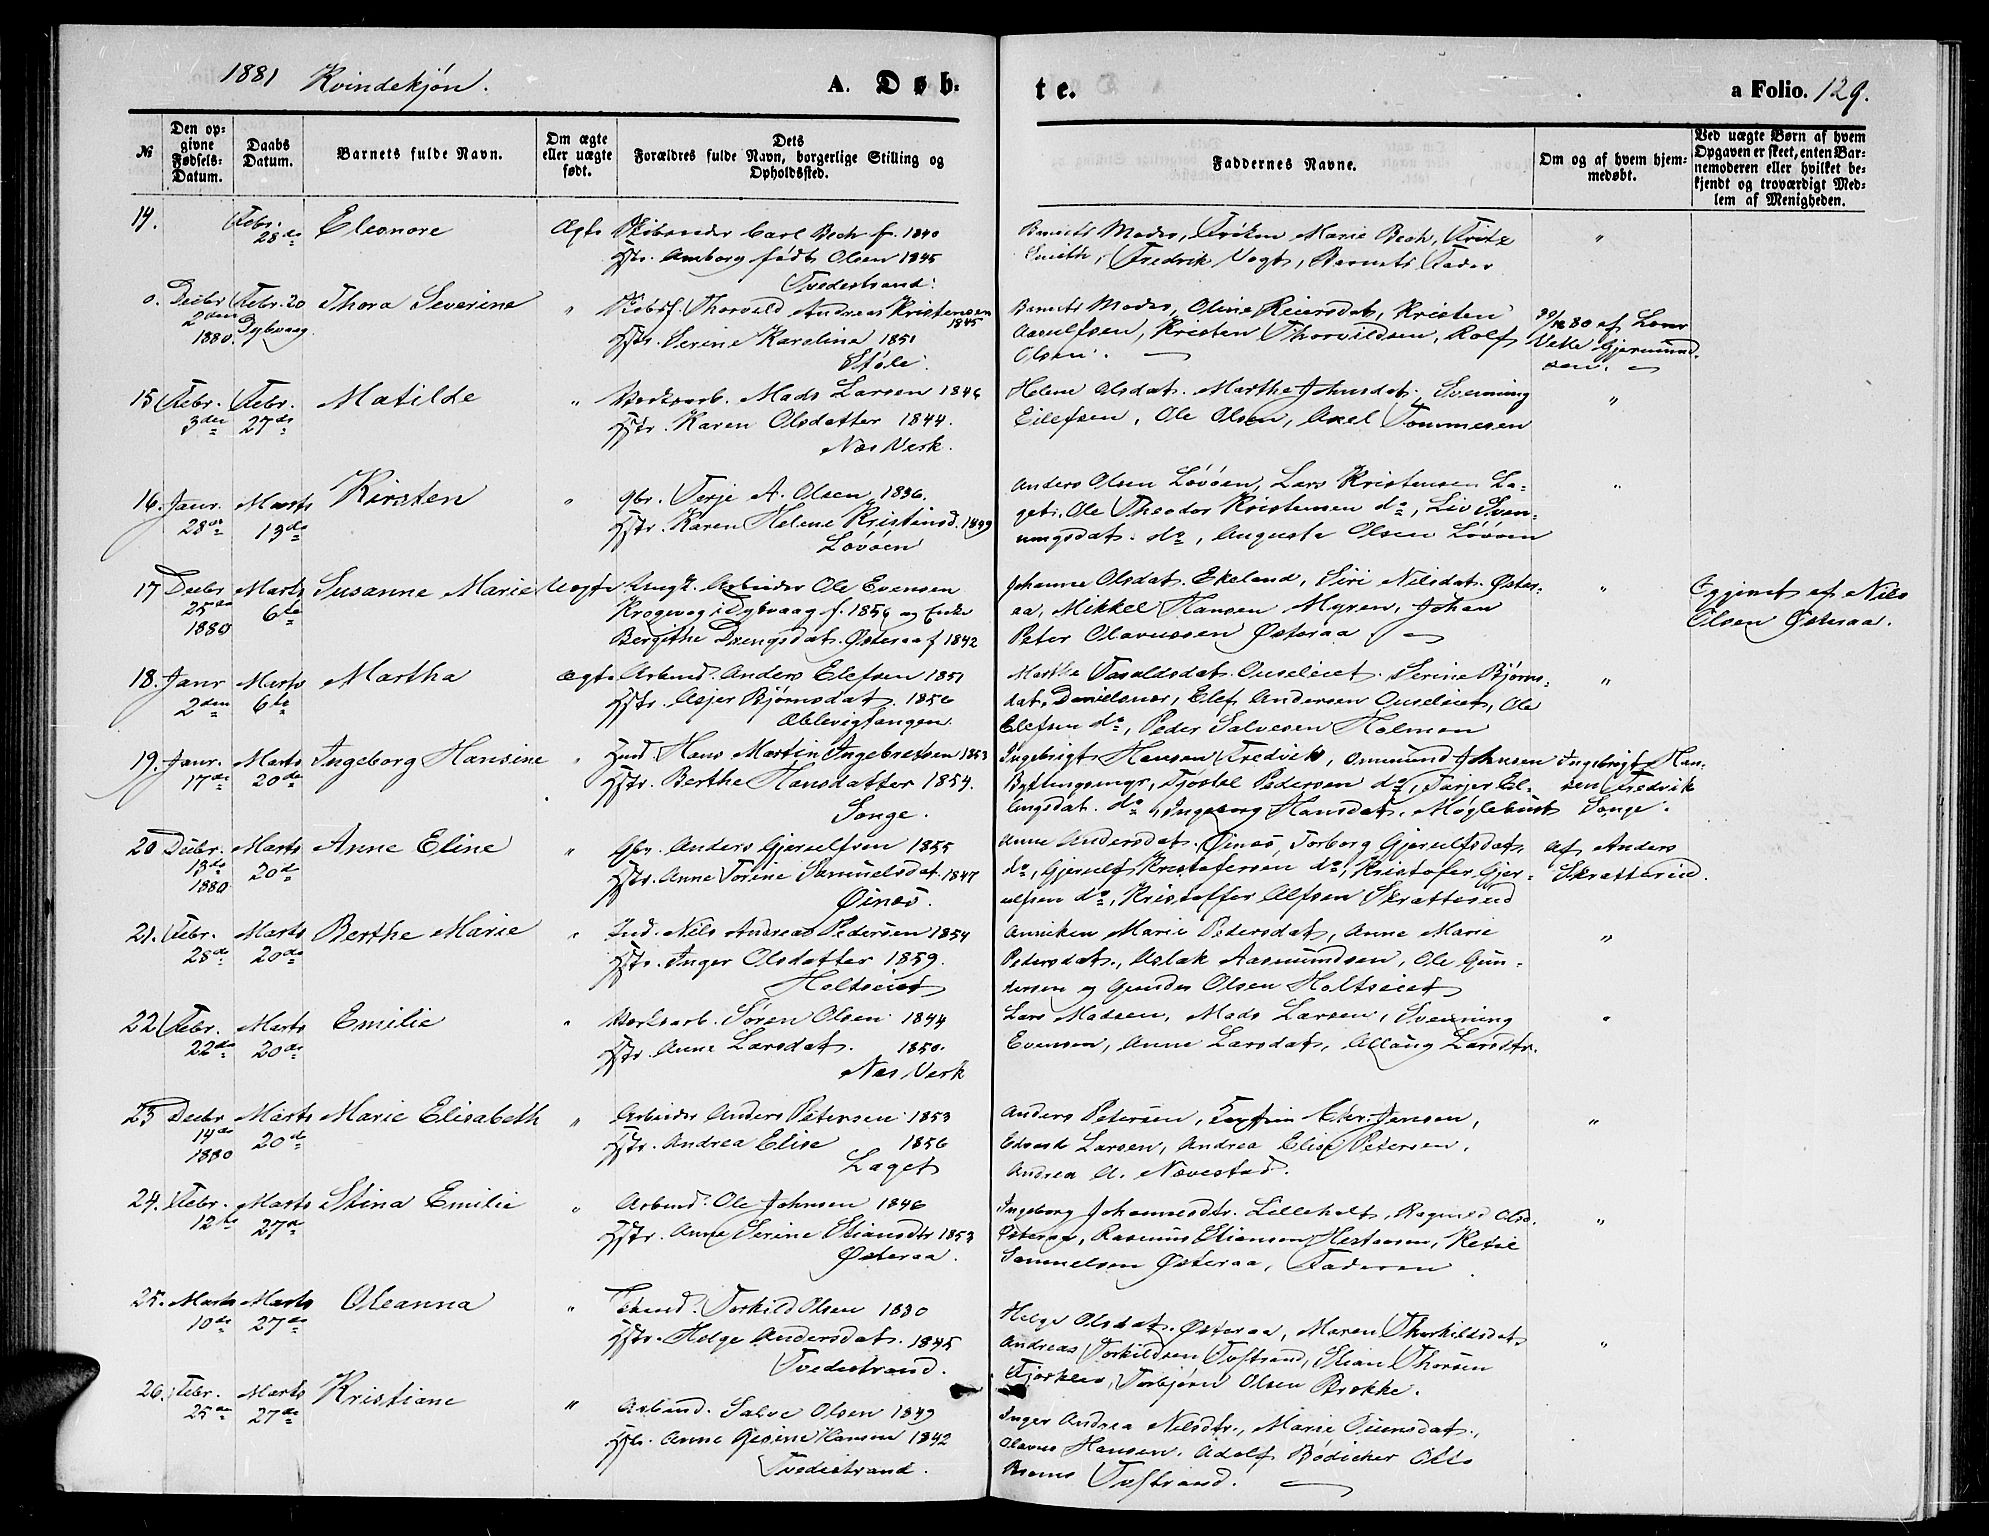 1881 Kvindekjøn. A. Døb-
te. a Folio. 129.
№ Den op-givne Fødsels-Datum. Daabs Datum. Barnets fulde Navn. Om ægte eller uægte født. Dets Forældres fulde Navn, borgerlige Stilling og Opholdssted.
Faddernes Navne. Om og af hvem hjem-medøbt. Ved uægte Børn af hvem Opgaven er skeet, enten Bar-nemoderen eller hvilket be-kjendt og troværdigt Med-lem af Menigheden.
14. Febr. 28de Eleonore Ægte Skibsreder Carl Bech f. 1840
Hstr. Amborg født Olsen 1845
Tvedestrand.
Barnets Moder, Frøken Marie Bech, Fritz
Smith, Fredrik Vogt, Barnets Fader "
0. Decbr 2den 1880. Febr. 20 Dybvaag. Thora Severine " Skibsf. Thorvald Andreas Kristensen 1845
Hstr. Serine Karoline 1851
Støle.
Barnets Moder, Oline Reiersdat, Kristen
Aasulfsen, Kristen Thorvildsen, Rolf
Olsen.
30/12 80 af Lover
Vette Gjermund-
sen.
15 Febr. 3den Febr. 27de Matilde " Verksarb. Mads Larsen 1846
Hstr. Karen Olsdatter 1844.
Næs Verk.
Helene Olsdat. Marthe Johnsdat. Svenning
Eilefsen, Ole Olsen, Axel Tommesen "
16. Janr. 28de Marts 13de Kirsten " gbr. Terje A. Olsen 1836.
Hstr. Karen Helene Kristensd. 1839
Løvøen
Anders Olsen Løvøen, Lars Kristensen La-
get, Ole Theodor Kristensen do, Liv Sven-
ningsdat. do, Auguste Olsen Løvøen "
17 Decbr 25de 1880 Marts 6te Susanne Marie Uægte Ungk. Arbeider Ole Evensen
Krogevog i Dybvaag f. 1856 og Enke
Bergithe Drengsdat. Østeraa f 1842
Johanne Olsdat. Ekeland, Siri Nilsdat. Øster-
aa, Mikkel Hansen Myren, Johan
Peter Olavussen Østeraa "
Opgivet af Nils
Olsen Østeraa.
18. Janr 2den Marts 6te Martha Ægte Arbmd. Anders Elefsen 1851
Hstr. Asjer Bjørnsdat. 1856
Æblevigtangen.
Marthe Taraldsdat. Auseleiet. Serine Bjørns-
dat. Danielsnæs, Elef Andersen Auseleiet, Ole
Elefsen do, Peder Salvesen Holmen "
19. Janr. 17de Marts 20de Ingeborg Hansine " Ind. Hans Martin Ingebretsen 1853
Hstr. Berthe Hansdatter 1854.
Songe.
Ingebrigt Hansen Fredvik, Osmund Johnsen
Byttingsmyr, Tjøstel Pedersen do, Tarjer El-
lingsdat. do, Ingeborg Hansdat. Møglebust
Ingebrigt Han-
sen Fredvik
Songe.
20 Decbr. 13de 1880 Marts 20de Anne Eline " Gbr. Anders Gjerulfsen 1855
Hstr. Anne Torine Samuelsdat. 1847
Øinæs.
Anne Andersdat. Øinæs, Torborg Gjerulfsdat.
do, Gjerulf Kristofersen do, Kristofer Gjer-
ulfsen do, Kristoffer Alfsen Skrattereid
af Anders
Skrattereid.
21. Febr. 28de Marts 20de Berthe Marie " Ind. Nils Andreas Pedersen 1854
Hstr. Inger Olsdatter 1859.
Holtseiet
Anniken Marie Pedersdat, Anne Marie
Pedersdat., Aslak Aasmundsen, Ole Gun-
dersen og Gunder Olsen Holtseiet "
22 Febr. 22de Marts 20de Emilie " Verksarb. Søren Olsen 1844
Hstr. Anne Larsdat. 1850.
Næs Verk
Lars Madsen, Mads Larsen, Svenning
Evensen, Anne Larsdat, Allaug Larsdtr. "
23 Decbr 14de 1880 Marts 20de Marie Elisabeth " Arbeider Anders Petersen 1853
Hstr. Andrea Elise 1856
Laget
Anders Petersen, Torfin Chr. Jensen,
Edvard Larsen, Andrea Elise Petersen,
Andrea A. Nævestad. "
24. Febr. 12te Marts 27de Stina Emilie " Arbmd. Ole Johnsen 1846
Hstr. Anne Serine Eliansdtr 1853
Østeraa.
Ingeborg Johannesdtr. Lilleholt, Ragnild Olsd.
Østeraa, Rasmus Eliansen Hestaasen, Ketil
Sammelsen Østeraa, Faderen "
25. Marts 10de Marts 27de Oleanna " Torkild Olsen 1830
Hstr. Helge Andersdat. 1845
Tvedestrand.
Helge Olsdat. Østeraa, Maren Thorkildsdat.
Andreas Torkildsen Tvstrand, Elian Thorsen
Fjærkleiv, Torbjørn Olsen Brokke. "
26. Febr. 25de Marts 27de Kristiane " Arbmd. Salve Olsen 1849
Hstr. Anne Gesine Hansen 1842
Tvedestrand.
Inger Andrea Nilsdtr., Marie
Olavus Hansen, Adolf Bødicker Otto
Tvstrand.